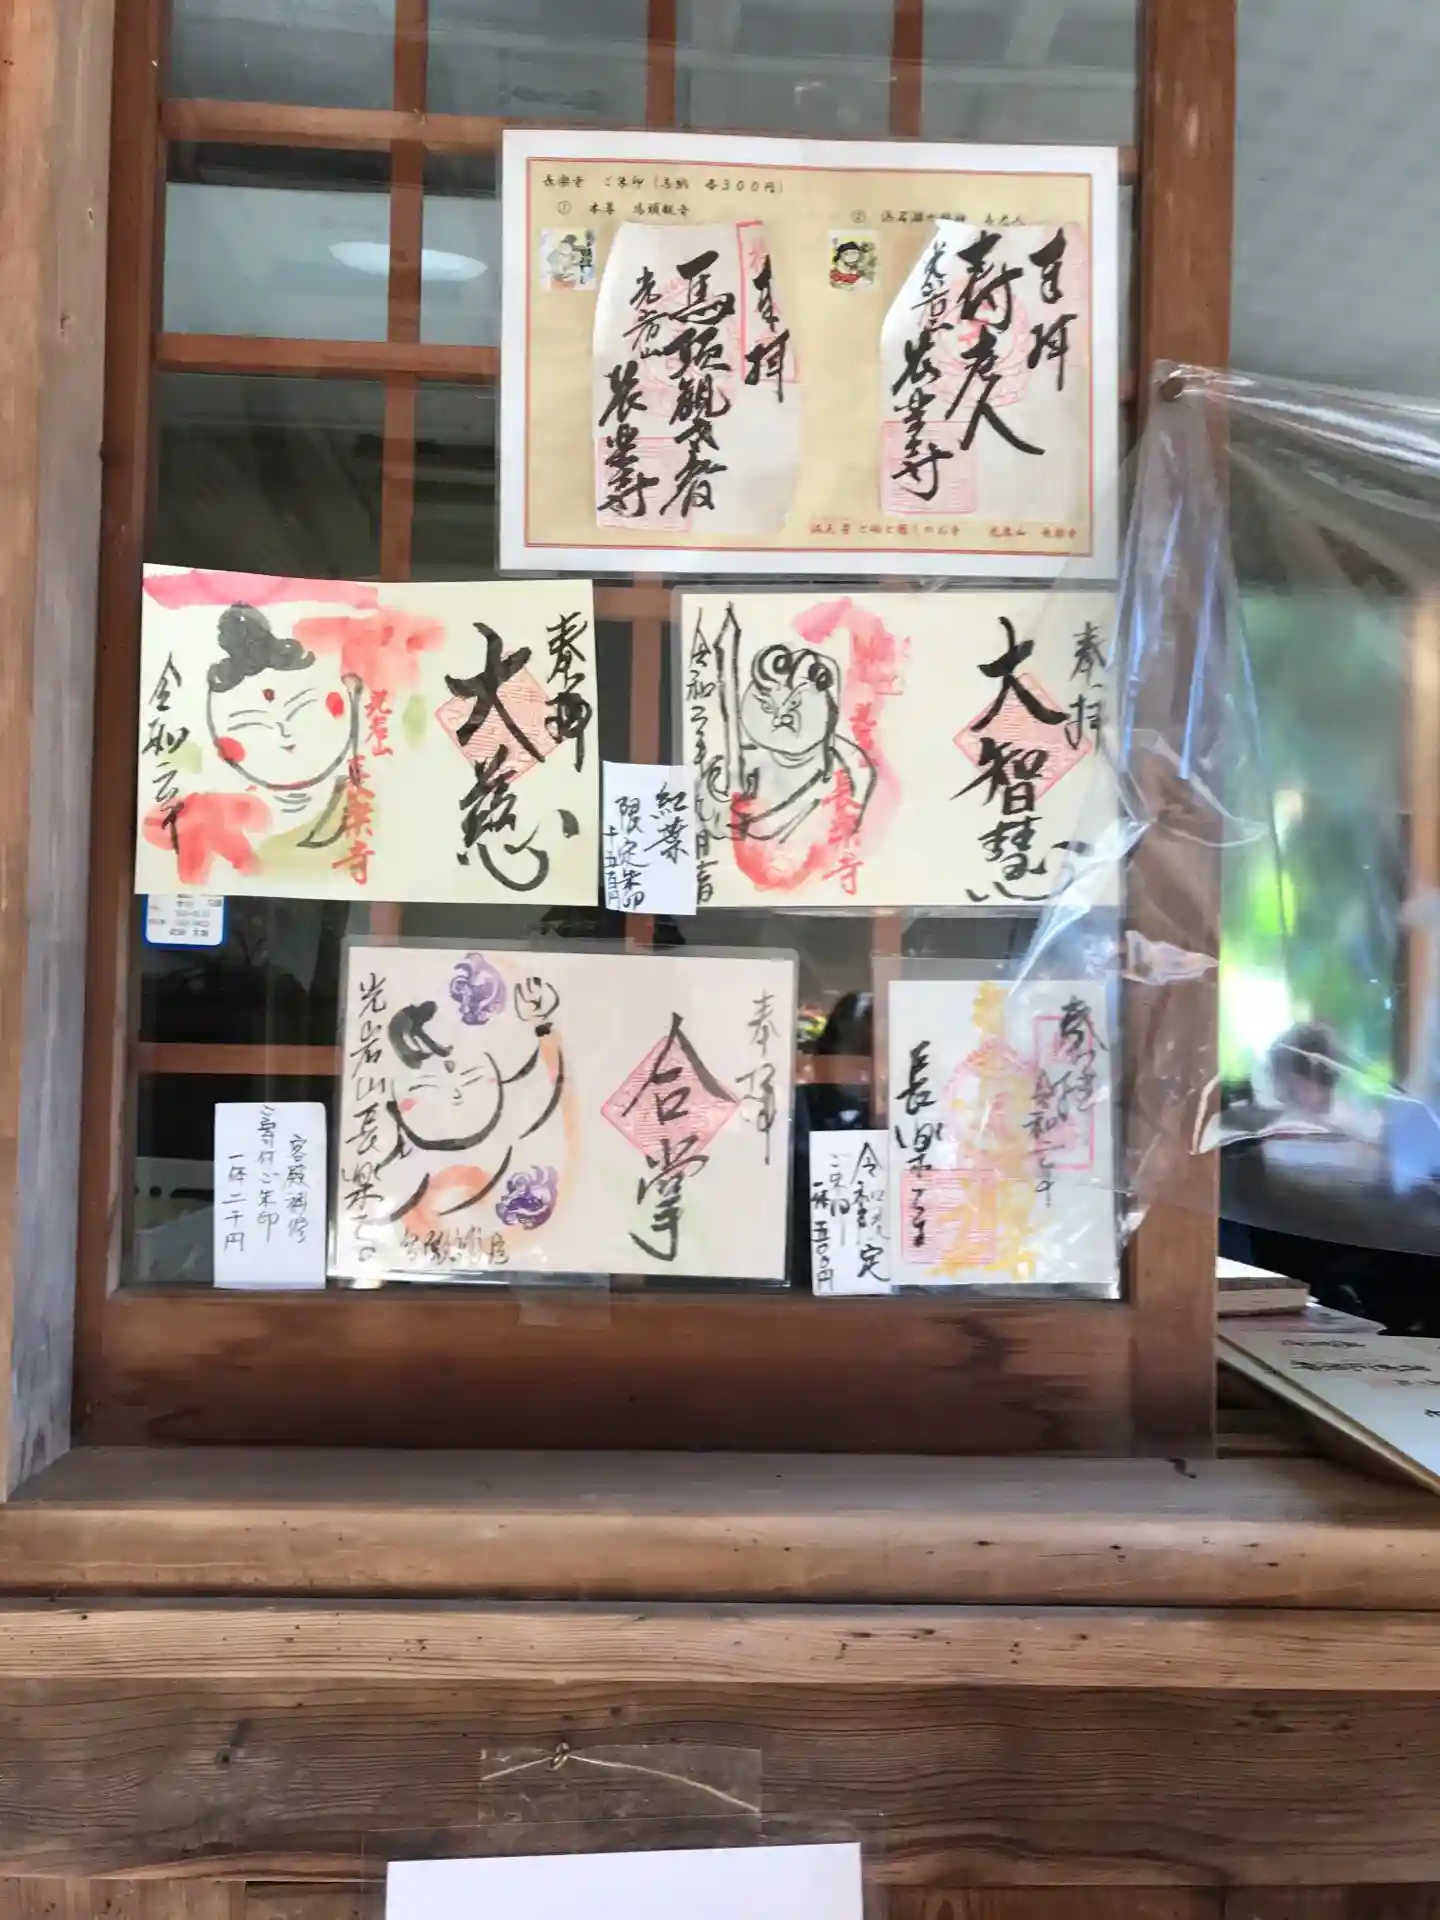 長楽寺 ご朱印（志納 各３００円）
① 本尊 馬頭観音
②
奉拝
馬頭観世音
光岩山
長楽寺
奉拝
寿老人
光岩山
長楽寺
光岩山 長楽寺
奉拝
大慈
光岩山
長楽寺
令和二年
奉拝
大智慧
長楽寺
紅葉
限定朱印
奉拝
合掌
光岩山長楽寺
客殿補修
ご寄付ご朱印
一体二千円
奉拝
令和二年
長楽寺
ご朱印
一体五〇〇円